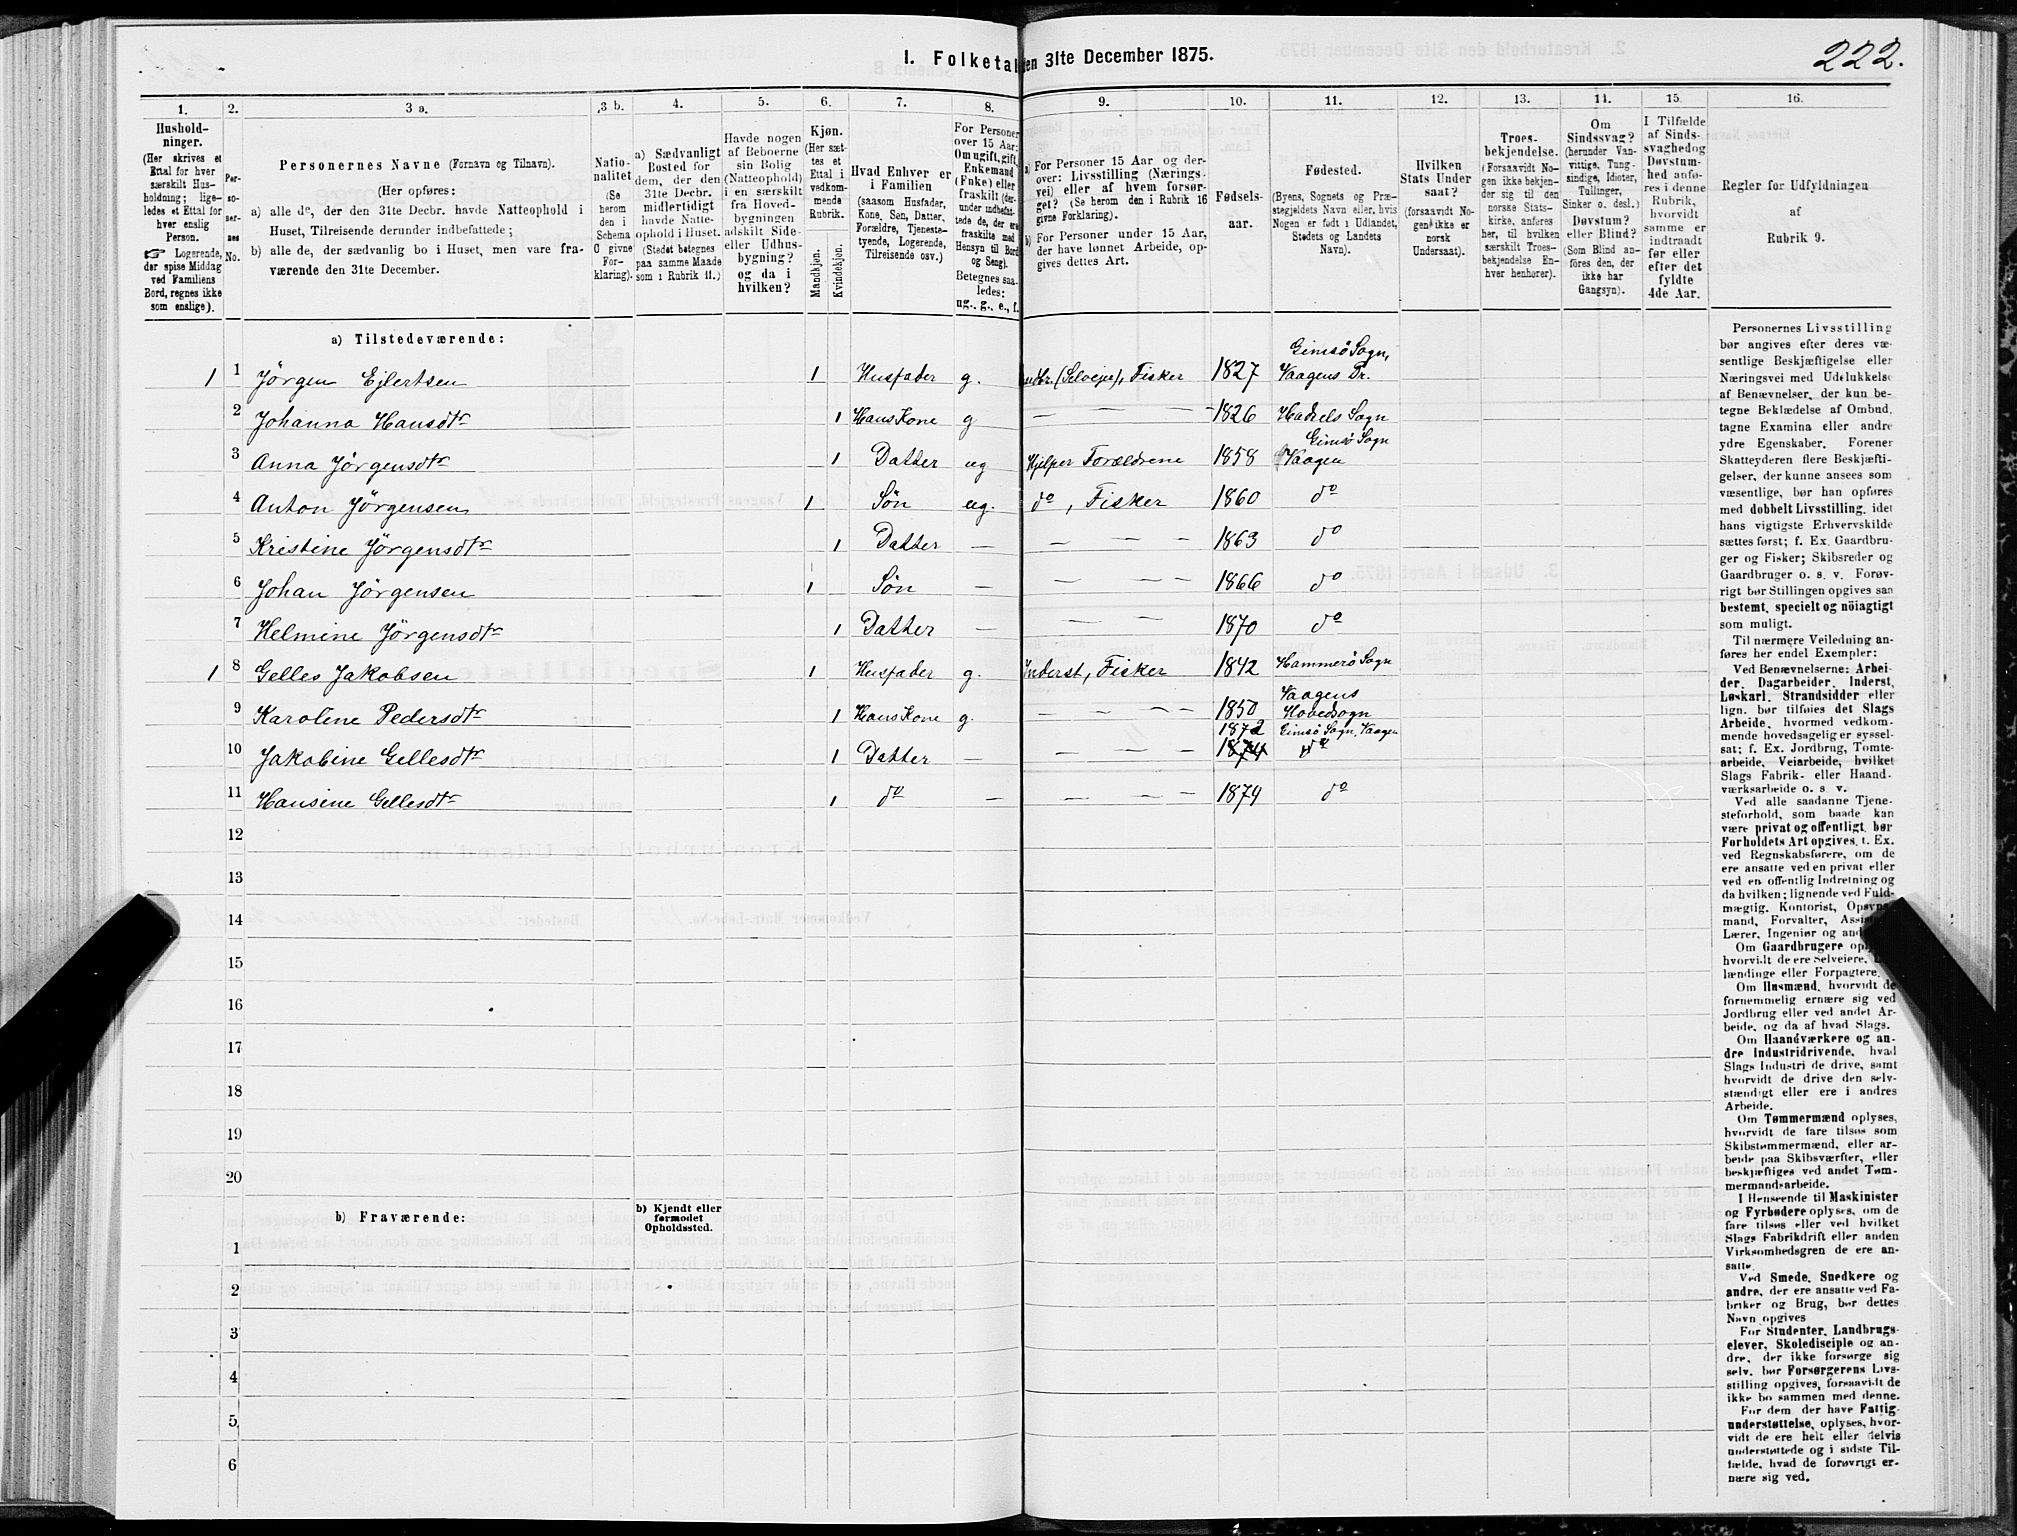 222.
1. Folketal den 31te December 1875.
1. 2. 3 a. 3 b. 4. 5. 6. 7. 8. 9. 10. 11. 12. 13. 14. 15. 16.
Hushold-
ninger.
(Her skrives et
Ettal for hver
særskilt Hus-
holdning; lige-
ledes et Ettal for
hver enslig
Person.
☞ Logerende,
der spise Middag
ved Familiens
Bord, regnes ikke
som enslige).
Per-
so-
ner-
nes
No.
Personernes Navne (Fornavn og Tilnavn).
(Her opføres:
a) alle de, der den 31te Decbr. havde Natteophold i
Huset, Tilreisende derunder indbefattede;
b) alle de, der sædvanlig bo i Huset, men vare fra-
værende den 31te December.
Natio-
nalitet
(Se
herom
den i
Schema
O givne
For-
klaring).
a) Sædvanligt
Bosted for
dem, der den
31te Decbr.
midlertidigt
havde Natte-
ophold i Huset.
(Stedet betegnes
paa samme Maade
som i Rubrik 11.)
Havde nogen
af Beboerne
sin Bolig
(Natteophold)
i en særskilt
fra Hoved-
bygningen
adskilt Side-
eller Udhus-
bygning?
og da i
hvilken?
Kjøn.
(Her sæt-
tes et
Ettal i
vedkom-
mende
Rubrik.
Mandkjøn.
Kvindekjøn.
Hvad Enhver er
i Familien
(saasom Husfader,
Kone, Søn, Datter,
Forældre, Tjeneste-
tyende, Logerende,
Tilreisende osv.)
For Personer
over 15 Aar:
Om ugift, gift,
Enkemand
(Enke) eller
fraskilt (der-
under indbefat-
tede de, der ere
fraskilte med
Hensyn til Bord
og Seng).
Betegnes saa-
ledes:
ug., g., e., f.
a) For Personer 15 Aar og der-
over: Livsstilling (Nærings-
vei) eller af hvem forsør-
get? (Se herom den i Rubrik 16
givne Forklaring).
b) For Personer under 15 Aar,
der have lønnet Arbeide, op-
gives dettes Art.
Fødsels-
aar.
Fødested.
(Byens, Sognets og Præ-
stegjeldets Navn eller, hvis
Nogen er født i Udlandet,
Stedets og Landets
Navn).
Hvilken
Stats Under
saat?
(forsaavidt No-
gen ikke er
norsk
Undersaat).
Troes-
bekjendelse.
(Forsaavidt No-
gen ikke bekjen-
der sig til den
norske Stats-
kirke, anføres
her, til hvilken
særskilt Troes-
bekjendelse En-
hver henhører).
Om
Sindssvag?
(herunder Van-
vittige, Tung-
sindige, Idioter,
Tullinger,
Sinker o. desl.)
Døvstum?
eller Blind?
(Som Blind an-
føres den, der
ikke har
Gangsyn).
I Tilfælde
af Sinds-
svaghed og
Døvstum-
hed anfø-
res i denne
Rubrik,
hvorvidt
samme er
indtraadt
før eller
efter det
fyldte
4de Aar.
Regler for Udfyldningen
af
Rubrik 9.
a) Tilstedeværende:
1 1 Jörgen Ejlertsen 1 Husfader g. (Selveier), Fisker 1827 Gimsö Sogn, Vaagens Pr.
2 Johanna Hansdtr 1 Hans Kone g — — — 1826 Hadsels Sogn
3 Anna Jörgensdtr 1 Datter ug Hjelper Forældrene 1858 Gimsö Sogn Vaagen
4 Anton Jörgensen 1 Sön ug. do, Fisker 1860 do
5 Kristine Jörgensdtr 1 Datter — — — — 1863 do
6 Johan Jörgensen 1 Sön — — — — 1866 do
7 Helmine Jörgensdtr 1 Datter — — — — 1870 do
1 8 Gelles Jakobsen 1 Husfader g. Inderst, Fisker 1842 Hammerö Sogn
9 Karoline Pedersdtr 1 Hans Kone g. — — — 1850 Vaagens Hovedsogn
10 Jakobine Gellesdtr 1 Datter — — — — 1872 1874 Gimsö Sogn, Vaagen do
11 Hansine Gellesdtr 1 do — — — — 1874 do
12
13
14
15
16
17
18
19
20
b) Fraværende:
b) Kjendt eller
formodet
Opholdssted.
1
2
3
4
5
6
Personernes Livsstilling
bør angives efter deres væ-
sentlige Beskjæftigelse eller
Næringsvei med Udelukkelse
af Benævnelser, der kun be-
tegne Beklædelse af Ombud,
tagne Examina eller andre
ydre Egenskaber. Forener
Skatteyderen flere Beskjæfti-
gelser, der kunne ansees som
væsentlige, bør han opføres
med dobbelt Livsstilling, idet
hans vigtigste Erhvervskilde
sættes først; f. Ex. Gaardbru-
ger og Fisker; Skibsreder og
Gaardbruger o. s. v. Forøv-
rigt bør Stillingen opgives saa
bestemt, specielt og nöiagtigt
som muligt.
Til nærmere Veiledning an-
føres her endel Exempler:
Ved Benævnelserne: Arbei-
der, Dagarbeider, Inderst,
Løskarl, Strandsidder eller
lign. bør tilføies det Slags
Arbeide, hvormed vedkom-
mende hovedsagelig er syssel-
sat; f. Ex. Jordbrug, Tomte-
arbeide, Veiarbeide, hvilket
Slags Fabrik- eller Haand-
værksarbeide o. s. v.
Ved alle saadanne Tjene-
steforhold, som baade kan
være privat og offentligt, bør
Forholdets Art opgives, t. Ex.
ved Regnskabsførere, om de
ere ansatte ved en privat eller
ved en offentlig Indretning og
da hvilken; lignende ved Fuld-
mægtig, Kontorist, Opsyns-
mand, Forvalter, Assistent
Lærer, Ingeniør og andre.
Om Gaardbrugere oplyses
hvorvidt de ere Selveiere,
lændinge eller Forpagtere.
Om Husmænd, hvorvidt de
fornemmelig ernære sig ved
Jordbrug eller ved andet Ar-
beide, og da af hvad Slags.
Om Haandværkere og an-
dre Industridrivende, hvad
Slags Industri de drive, samt
hvorvidt de drive den selv-
stændigt eller ere i andres
Arbeide.
Om Tømmermænd oplyses,
hvorvidt de fare tilsøs som
Skibstømmermænd, eller ar-
beide paa Skibsværfter, eller
beskjæftiges ved andet Tøm-
mermandsarbeide.
I Henseende til Maskinister
og Fyrbødere oplyses, om de
fare tilsøs eller ved hvilket
Slags Fabrikdrift eller anden
Virksomhedsgren de ere an-
satte.
Ved Smede, Snedkere og
andre, der ere ansatte ved Fa-
briker og Brug, bør dettes
Navn opgives
For Studenter, Landbrugs-
elever, Skoledisciple og an-
dre, der ikke forsørge sig
selv, bør Forsørgerens Livs-
stilling opgives, forsaavidt de
ikke bo sammen med denne.
For dem, der have Fattig-
understøttelse, oplyses, hvor-
vidt de ere helt eller delvis
understøttede og i sidste Til-
fælde, hvad de forøvrigt er-
nære sig ved.